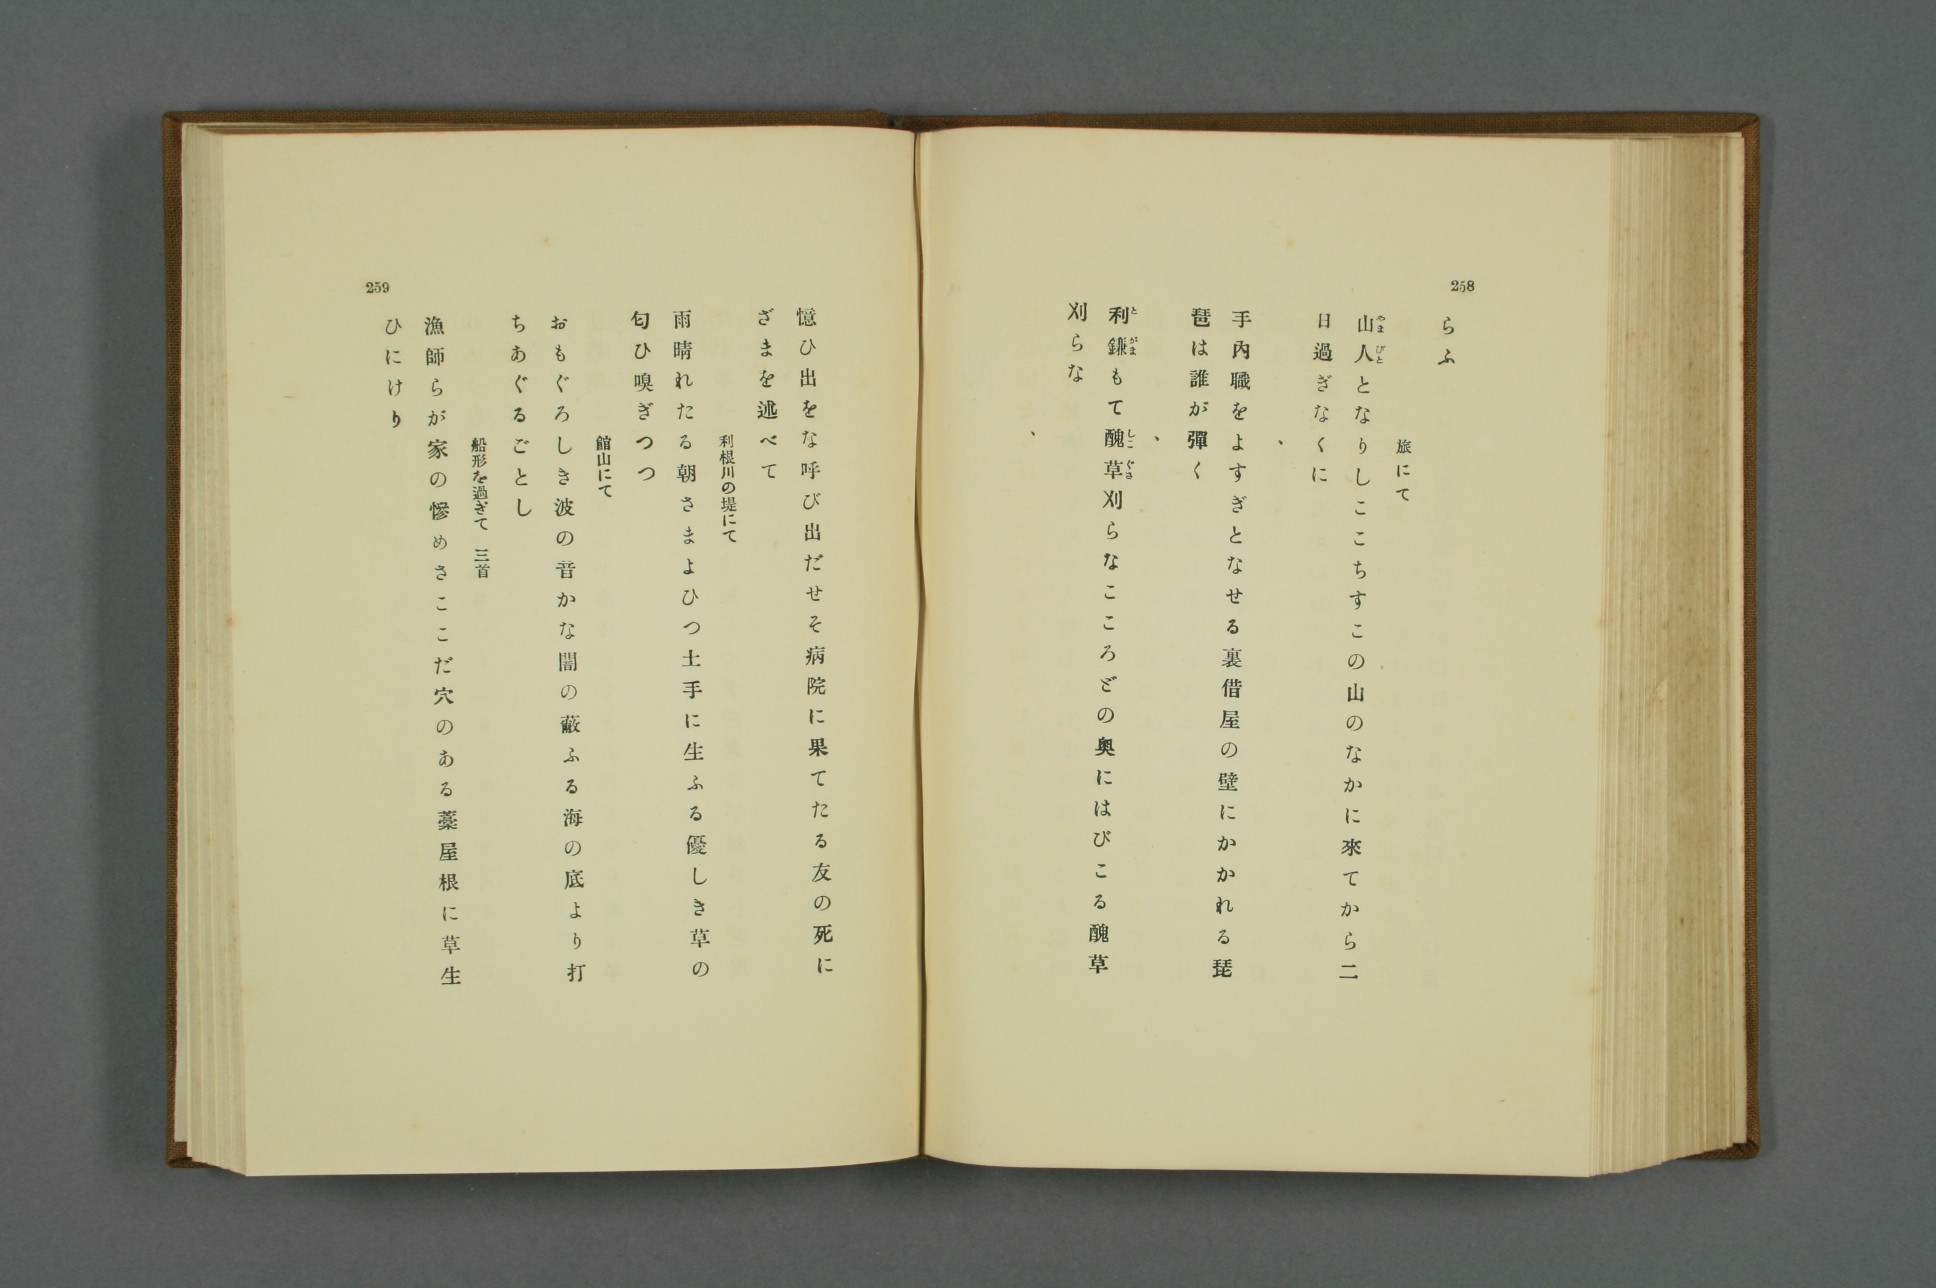 258
らふ
旅にて
山人となりしここちすこの山のなかに來てから二
日過ぎなくに
、
手內職をよすぎとなせる裏借屋の壁にかかれる琵
琶は誰が彈く
、
利鎌もて醜草刈らなこころどの奧にはびこる醜草
刈らな
、
259
憶ひ出をな呼び出だせそ病院に果てたる友の死に
ざまを述べて
利根川の堤にて
雨晴れたる朝さまよひつ土手に生ふる優しき草の
匂ひ嗅ぎつつ
館山にて
おもぐろしき波の音かな闇の蔽ふる海の底より打
ちあぐるごとし
船形を過ぎて 三首
漁師らが家の慘めさここだ穴のある藁屋根に草生
ひにけり